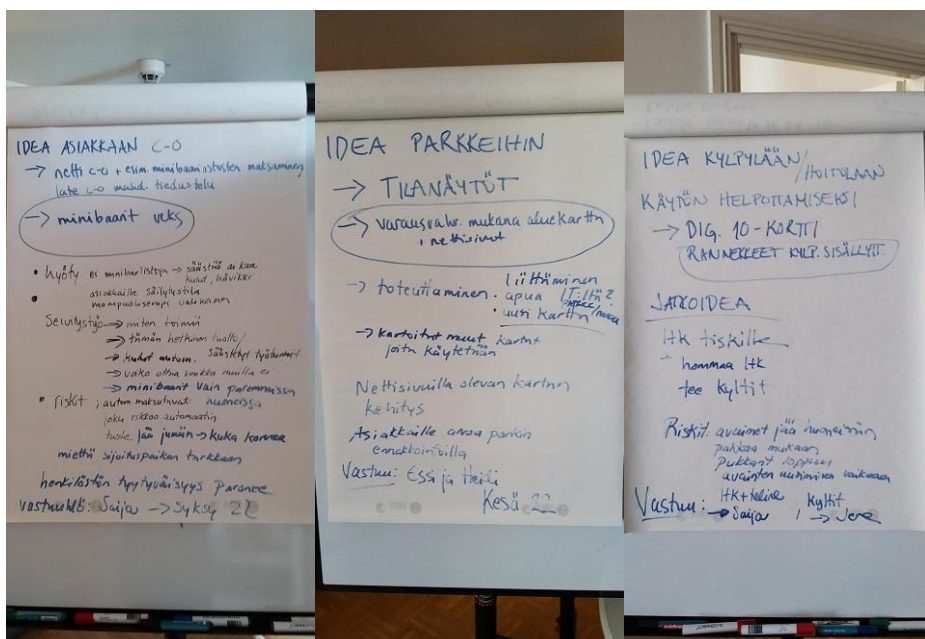 IDEA ASIAKKAAN C-O
→ netti c-o + esim. minibaariostosten maksaminen
late c-o mahd. tiedustelu
→ minibaarit veks
• hyöty ei minibarlistoja → säästää
kulut, hävikki
asiakkaille säilytystila
monipuolisempi valikoima
Selvitystyö → miten toimii
→ tämän hetkinen tuotto
→ kulut autom. säästetyt työtunnit
→ voiko ottaa vaikka muilla ei
→ minibaarit vain paremmissa
huoneissa
• riskit ; autom. maksutavat
joku rikkoo automaatin
tuote jää jumiin → kuka korvaa
miettiä sijoituspaikan tarkkaan
henkilöstön tyytyväisyys paranee
Vastuu MB: Saija → Syksy 22
IDEA PARKKEIHIN
→ TILANÄYTÖT
→ varausvahv. mukana aluekartta
+ nettisivut
→ toteuttaminen • liittäminen
apua IT:ltä?
• uusi kartta
→ kartoitus muut kartat
joita käytetään
Nettisivuilla olevan kartan
kehitys
Asiakkaille arvoa parkin
ennakkoinfoilla
Vastuu: Essi ja Heili
Kesä 22
IDEA KYLPYLÄÄN/
HOITOLAAN
KÄYTÖN HELPOTTAMISEKSI
→ DIG. 10-KORTTI
RANNEKKEET KYLP. SISÄLLYIT.
JATKOIDEA
ltk tiskille
hommaa ltk
tee kyltit
Riskit: avaimet jää huoneisiin,
mukaan
loppuu
avainten uusiminen vaikeaa
Vastuu: ltk+teline Kyltit
→ Saija / → Jere